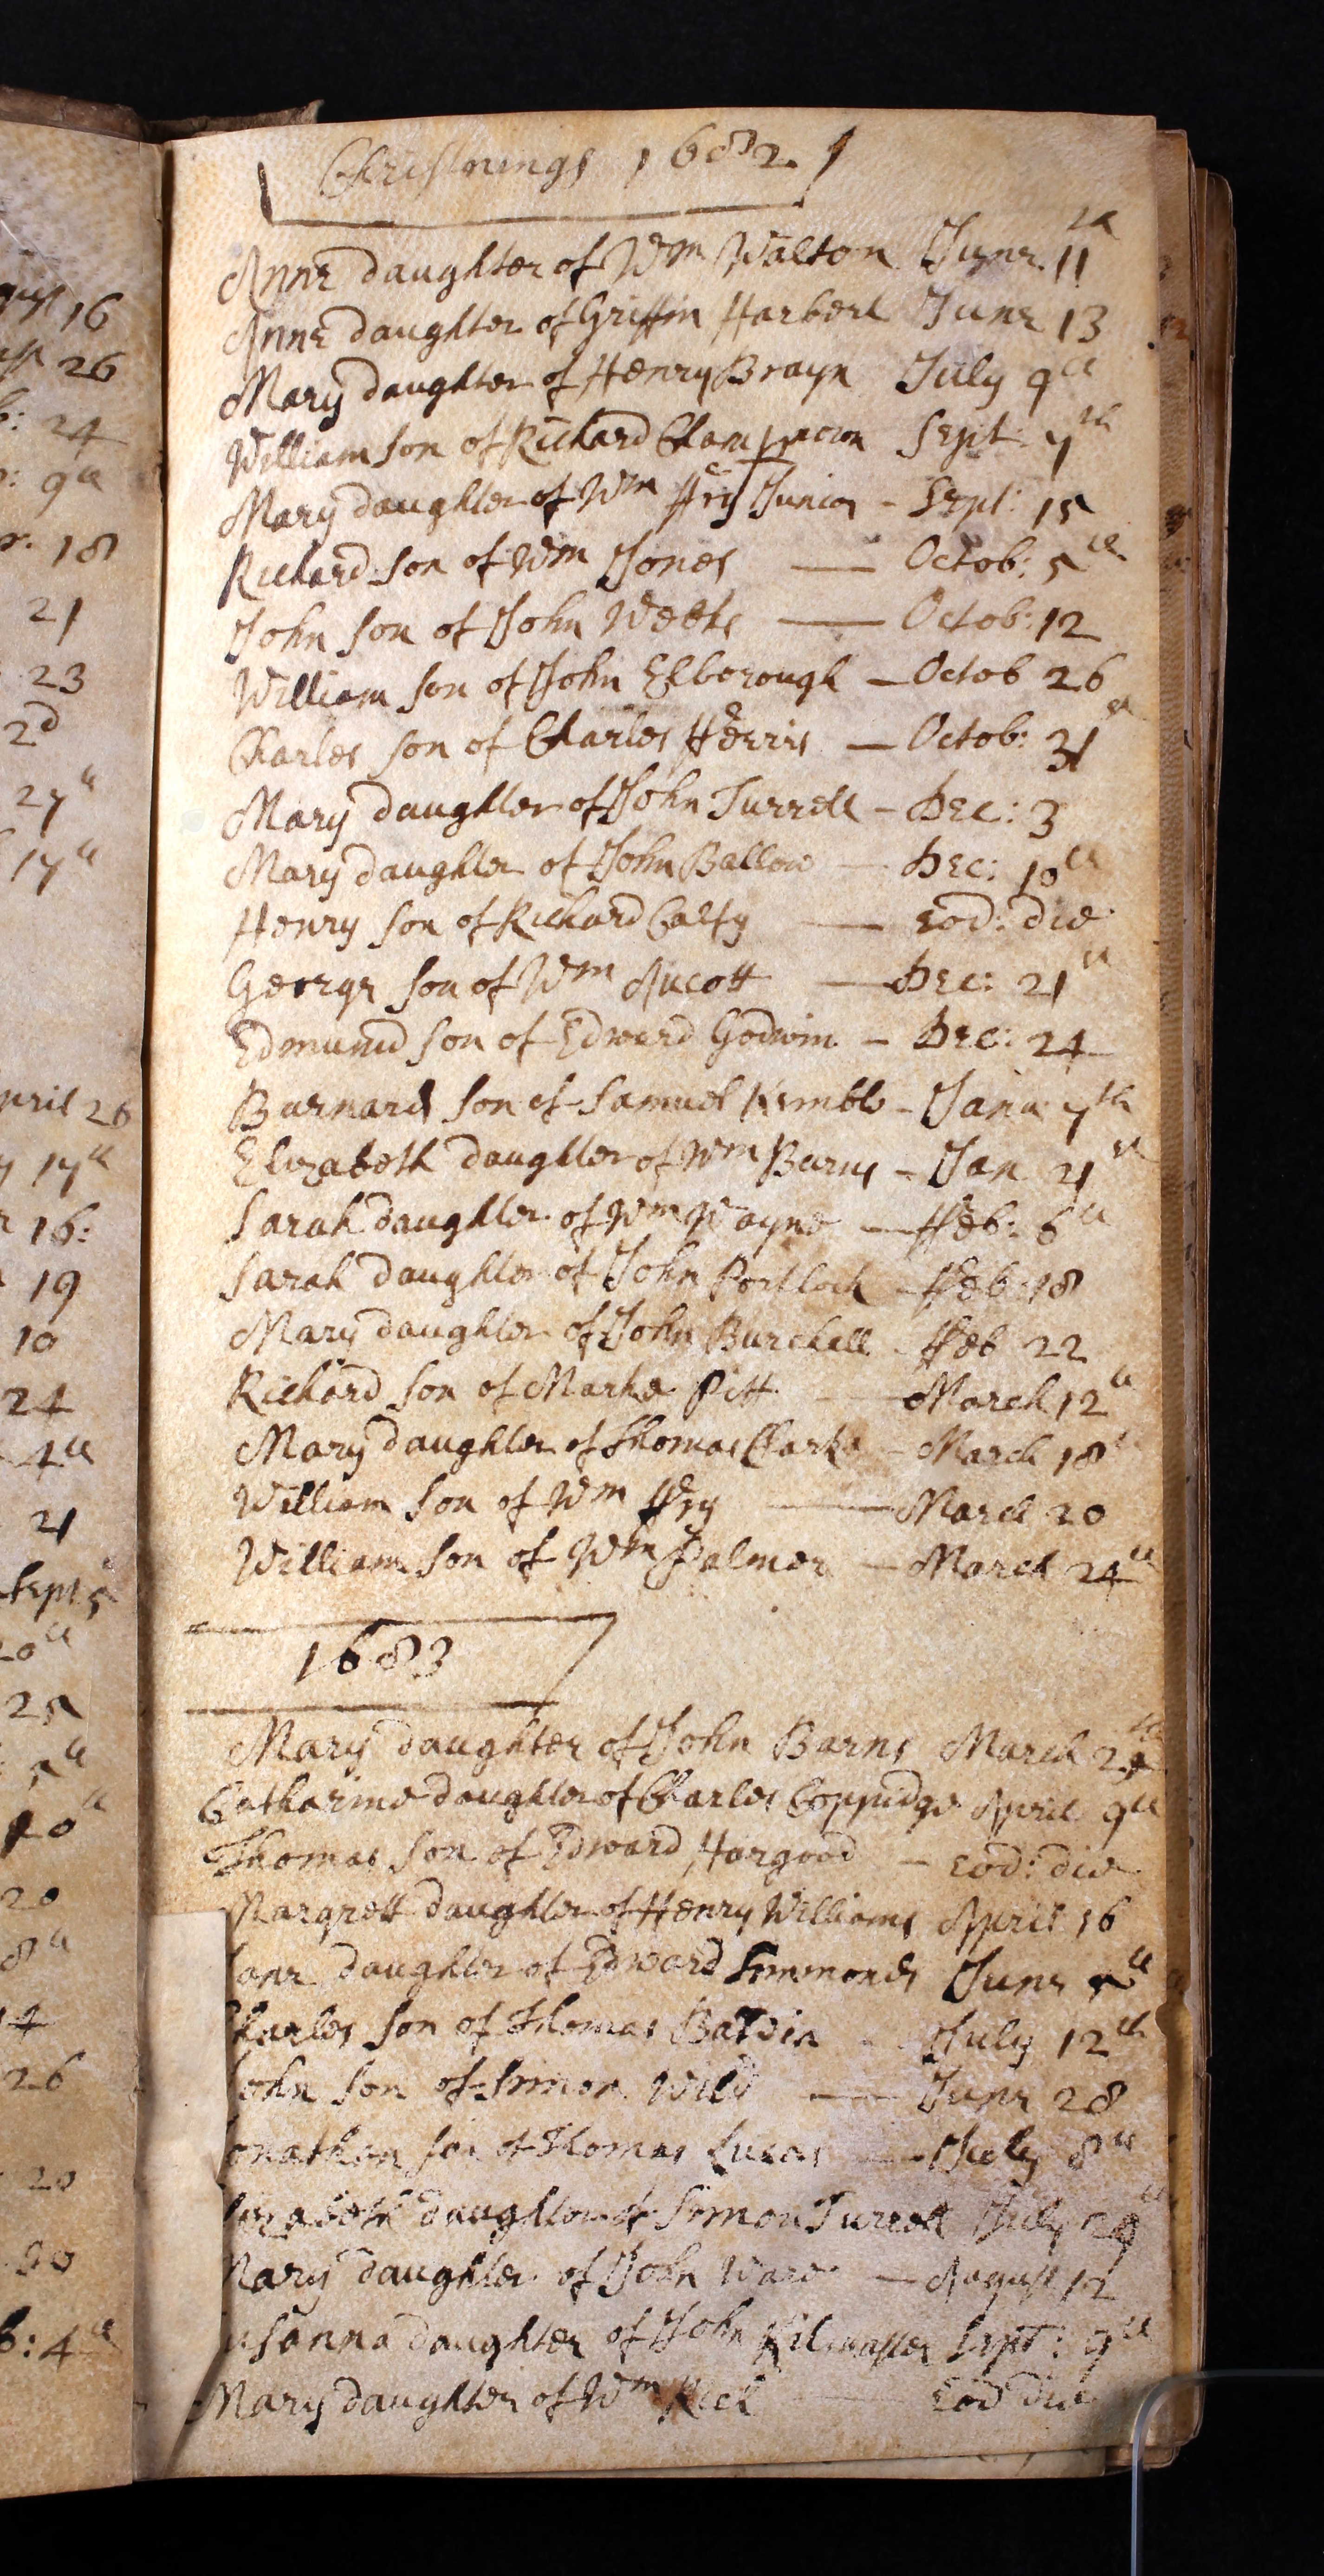 Christnings 1682
Anne daughter of Wm Walton June 11th
Anne daughter of Griffin Harberl June 13
Mary daughter of Henry Brayn July 9th
William son of Richard Champnion Sept: 7th
Mary daughter of Wm ffry Junior - Sept: 15
Richard son of Wm Jones — Octob: 5th
John son of John Weeks — Octob: 12
William son of John Elborough — Octob 26
Charles son of Charles fferris — Octob: 31th
Mary daughter of John Turrell - Dec: 3
Mary daughter of John Ballow — Dec: 10th
Henry son of Richard Calfy — eod: die
George son of Wm Aucott — Dec: 21th
Edmund son of Edward Godwin - Dec: 24
Barnard son of Samuel Kemble - Janu: 7th
Elizabeth daughter of Wm Barns - Jan 21th
Sarah daughter of Wm Wayne — ffeb: 6th
Sarah daughter of John Portlock - ffeb: 18
Mary daughter of John Burchell ffeb 22
Richard son of Marke Pitt — March 12th
Mary daughter of Thomas Clarke - March 18th
William son of Wm ffry — March 20
William son of Wm Palmer — March 24th
1683
Mary daughter of John Barns March
Catharine daughter of Charles Coppidge April 9th
Thomas son of Edward Hargood - eod: die
Margrett daughter of Henry Williams April 16
Jane daughter of Edward Simmonds June 5th
Charles son of Thomas July 12th
John son of Simon Wild — June 28
Jonathan son of Thomas Lucas — July 8th
daughter of Simon Turrell July 29th
Mary daughter of John Ware — August 12
usanna daughter of John Kilmaster Sept: 9th
Mary daughter of Wm Rick — Eod die
gust 16
26
24
9th
18
21
23
2d
27th
17th
April 26
17th
16:
19
10
24
4th
21
Sept 5
20th
25
5th
10th
20
8th
26
20
30
4th